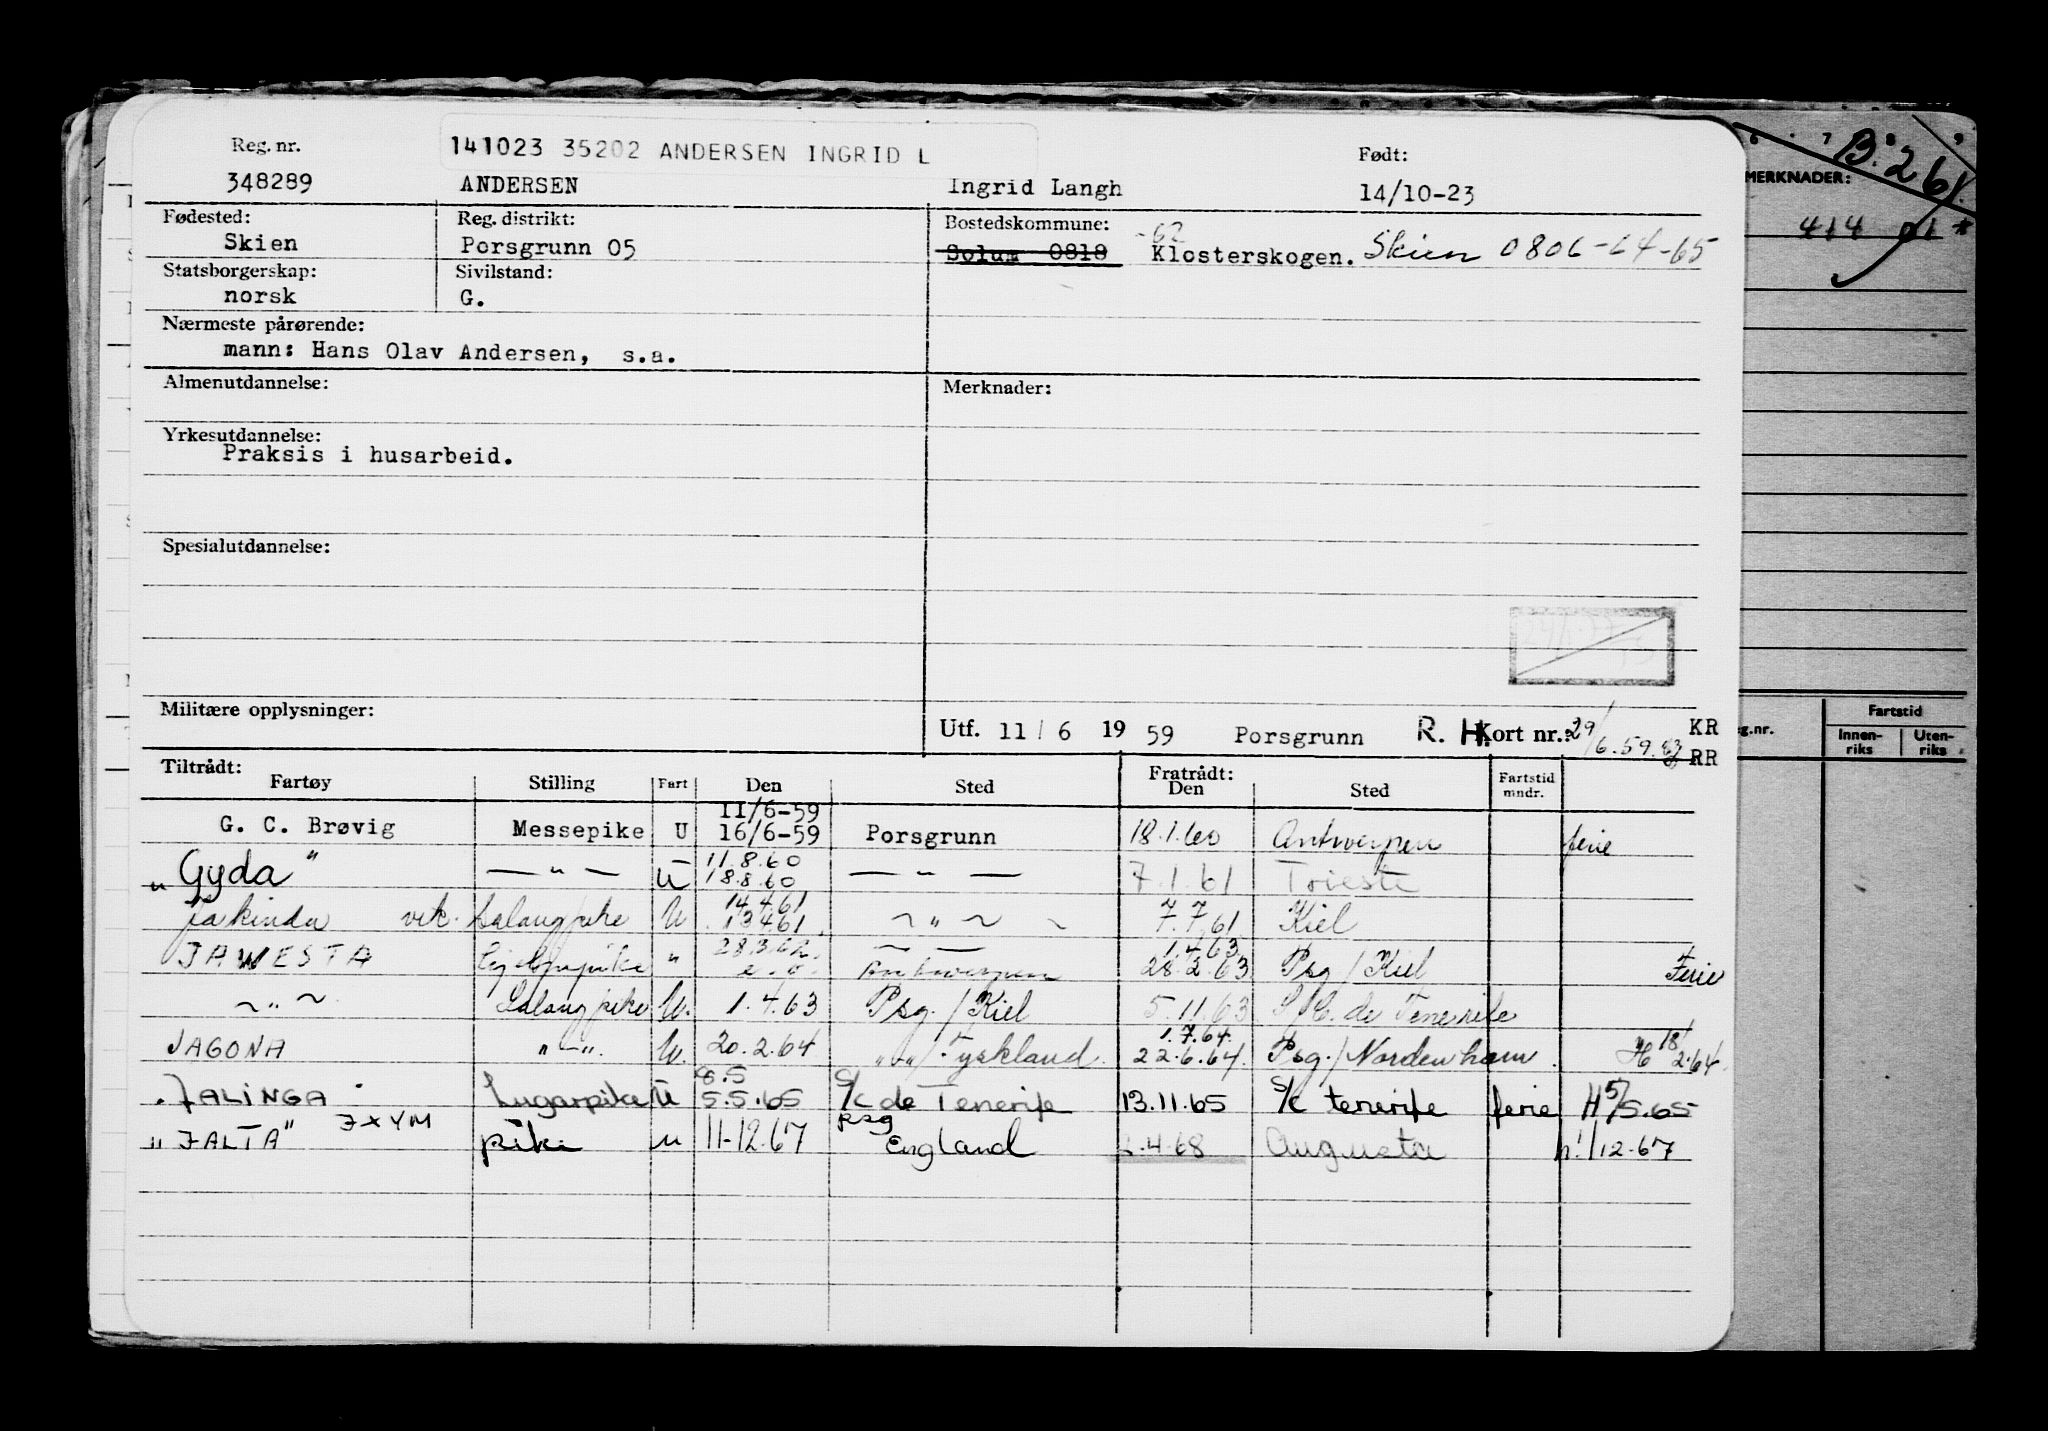 Reg. nr. 141023 35202 ANDERSEN INGRID L Født:
348289 ANDERSEN Ingrid Langh 14/10-23
Fødested: Reg. distrikt: Bostedskommune: -62
Skien Porsgrunn 05 Solum 0818 Klosterskogen. Skien 0806-64-65
Statsborgerskap: Sivilstand:
norsk G.
Nærmeste pårørende:
mann: Hans Olav Andersen, s.a.
Almenutdannelse: Merknader:
Yrkesutdannelse:
Praksis i husarbeid.
Spesialutdannelse:
Militære opplysninger:
Utf. 11/6 1959 Porsgrunn R.H. Kort nr. 29/6.59. KR
RR
Tiltrådt: Fratrådt:
Fartøy Stilling Fart Den Sted Den Sted Fartstid mndr.
11/6-59
G. C. Brøvig Messepike U 16/6-59 Porsgrunn 18.1.60 Antwerpen ferie
11.8.60
"Gyda" — " — U 18.8.60 — " — 7.1.61 Trieste
14.4.61
Jakinda vik. Salongpike U 13.4.61 ~ " ~ 7.7.61 Kiel
28.3.62 1.4.63
JAWESTA " Antwerpen 28.2.63 Psg/Kiel Ferie
~ " ~ Salongpike U. 1.4.63 Psg./Kiel 5.11.63 S/C. de Tenerife
1.7.64.
JAGONA " — ". U. 20.2.64 " — "/Tyskland. 22.6.64. Psg./Nordenham. H 18/2.64.
6.5
JALINGA Lugarpike U 5.5.65 S/c de Tenerife 13.11.65 S/c tenerife ferie H 5/5.65
JXYM psg
"JALTA" pike u 11-12.67 England .4.68 Augusta h!/12-67
B. 261.
MERKNADER:
414 01 *
g.nr. Fartstid
Innen-riks Uten-riks